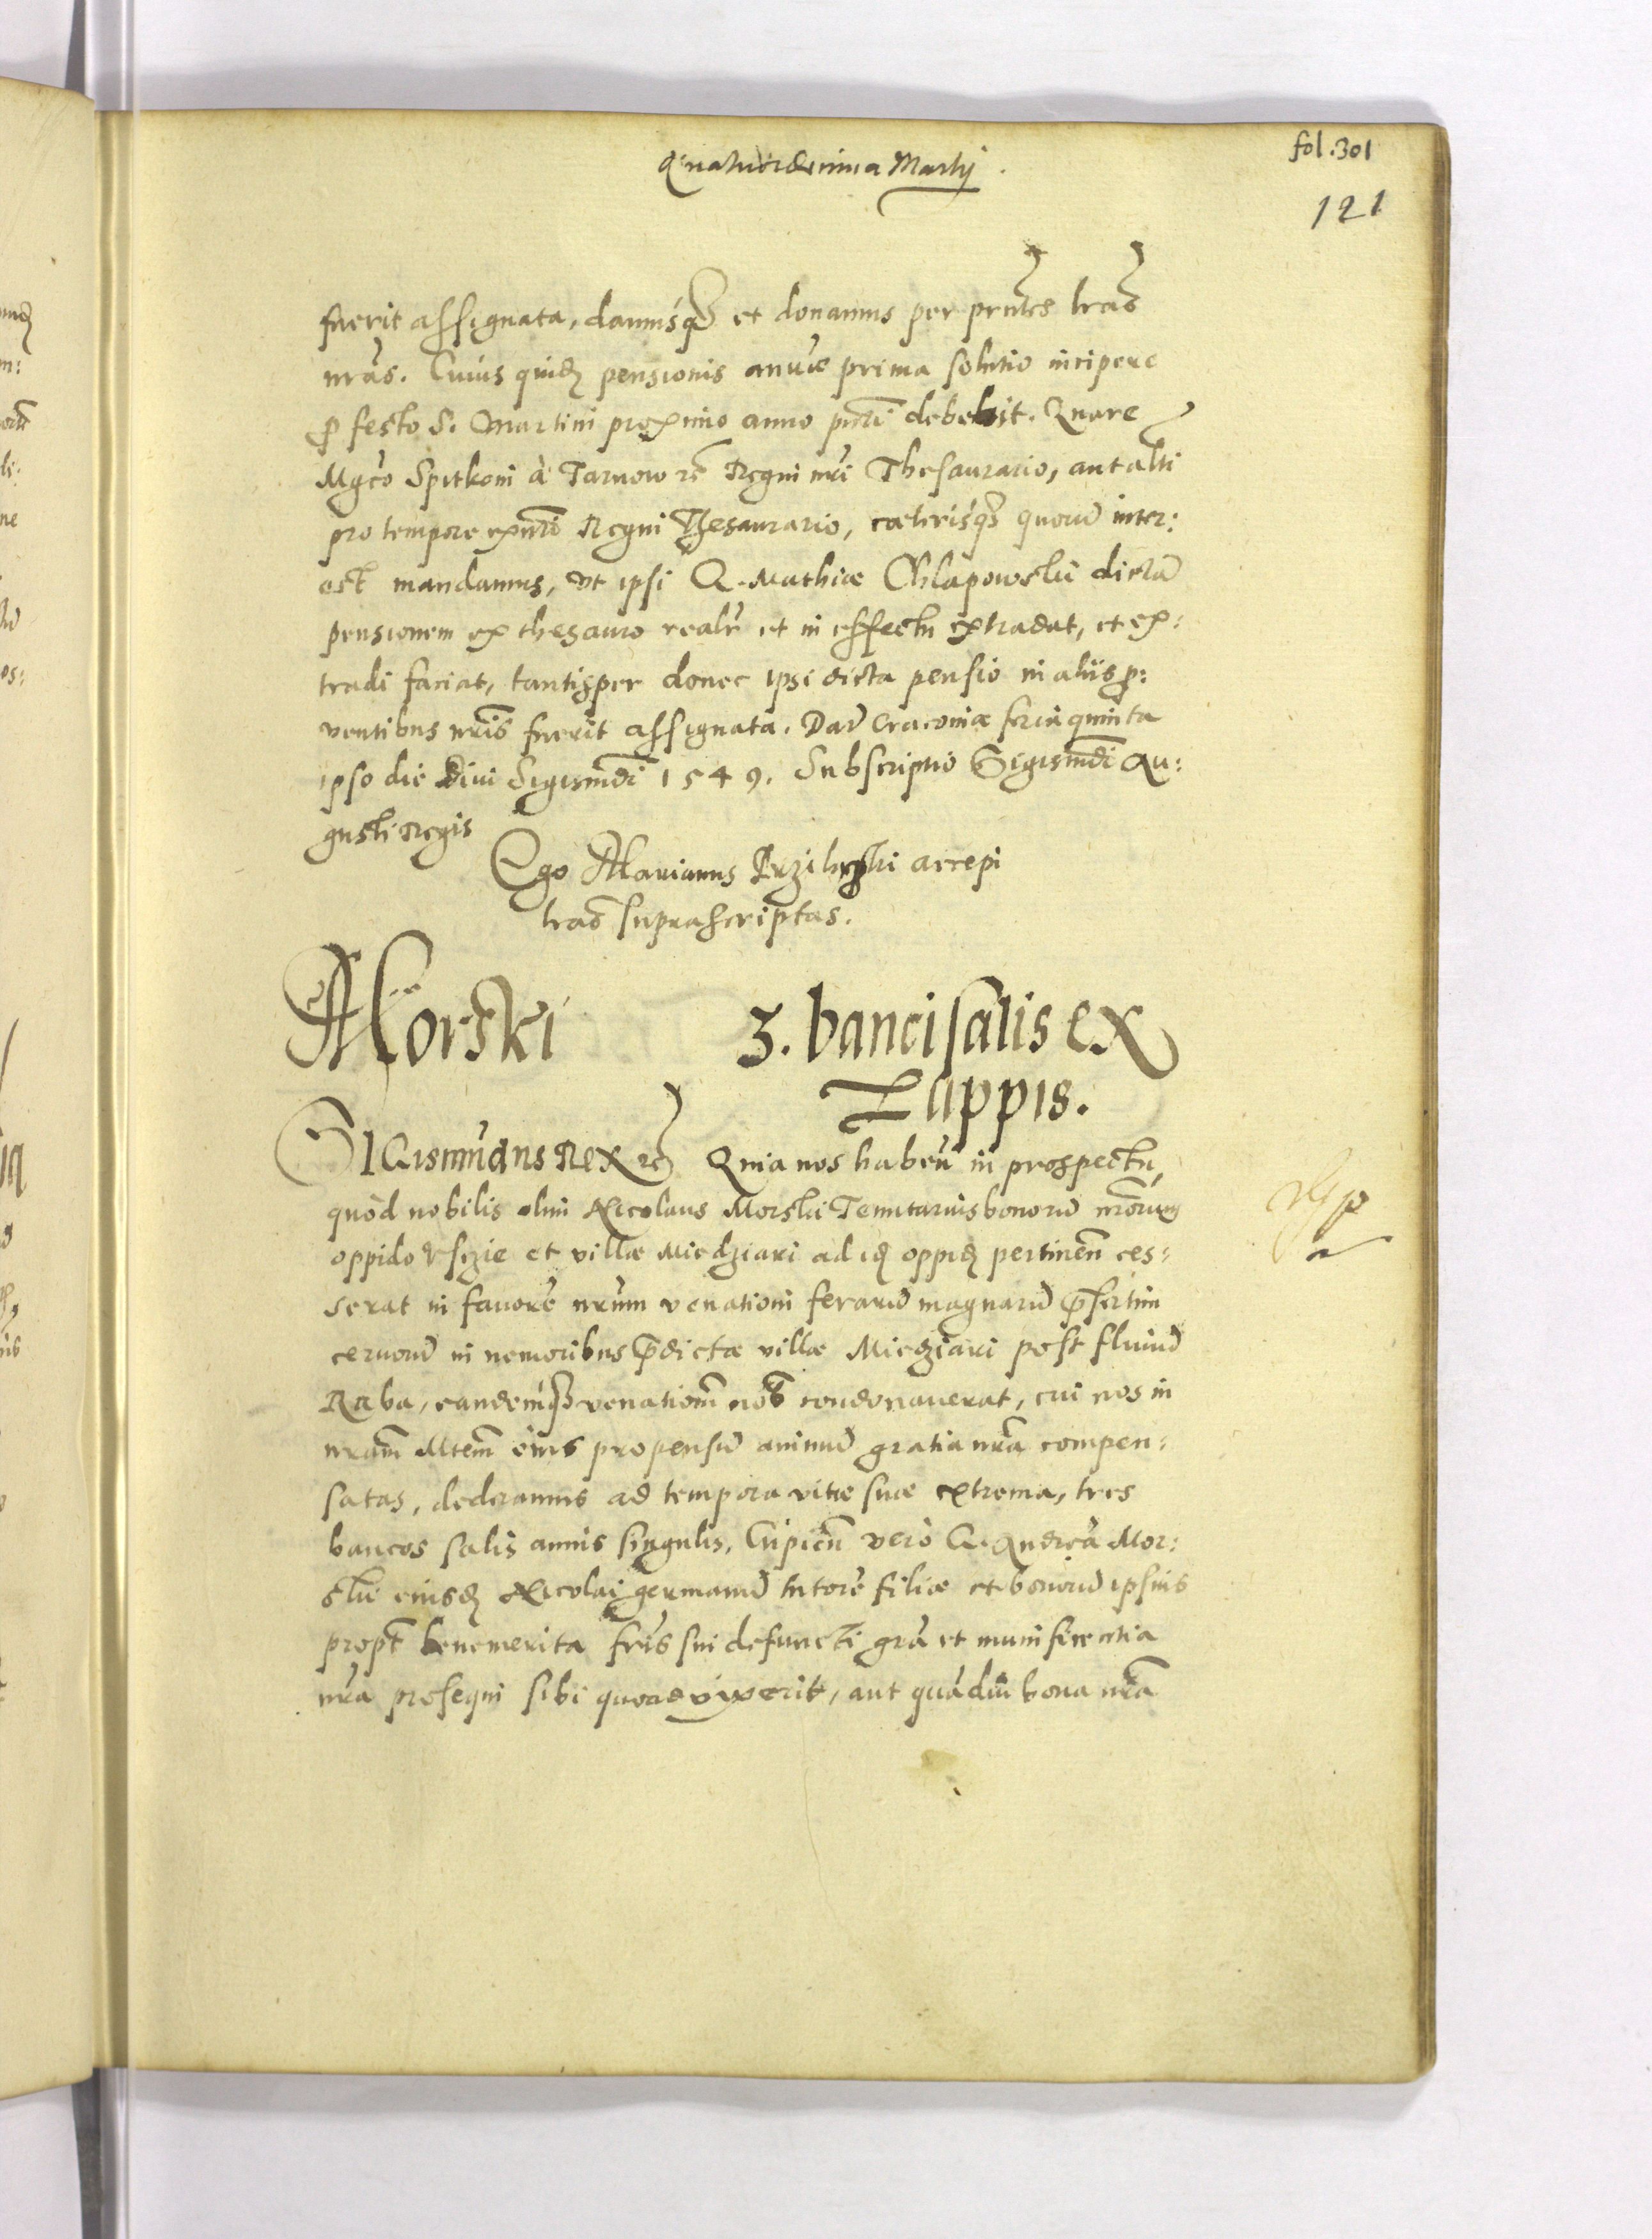 Quatuordecima Martij.
fol. 301
121
fuerit assignata, damusq3 et donamus per pñtes lras
nras. Cuius quidẽ pensionis annuæ prima solutio incipere
p festo S. Martini proximo anno pñti debebit. Quare
Mgco Spitkoni à Tarnow rc Regni nri Thesaurario, aut alti
pro tempore exñti Regni Thesaurario, cæterisq3 quorũ inter:
est mandamus, vt ipsi G. Mathiæ Chlapowski dictã
pensionem ex thesauro realr et in effectu extradat, et ex:
tradi faciat, tantisper donec ipsi dicta pensio in aliis p:
uentibus nris fuerit assignata. Dat Cracouiæ feria quinta
ipso die Diui Sigismũdi 1549. Subscriptio Sigismũdi Au:
gusti Regis
Ego Marianus accepi
lras suprascriptas.
Morski 3. banci salis ex
Zuppis.
SIGismũdus Rex rc Quia nos habeñ in prospectu,
quòd nobilis olim Nicolaus Morski Tenutarius bonorũ nrorum
oppido Vsczie et villæ Miedziari ad id oppid pertineñ ces:
serat in fauorẽ nrum venationi ferarũ magnarũ pser̃tim
ceruorũ in nemoribus pdictæ villæ Miedziari post fluuiũ
Raba, eandemq3 venationẽ nob condonauerat, cui nos in
nram Mtem eius propensũ animũ gratia nra compen:
satas, dederamus ad tempora vitæ suæ extrema, tres
bancos salis annis singulis, Cupieñ verò G. Andreã Mor:
ski eiusd Nicolai germanũ tutorẽ filiæ et bonorũ ipsius
propt benemerita fris sui defuncti grã et munificentia
nra prosequi sibi quoad vixerit, aut quãdiu bona nra